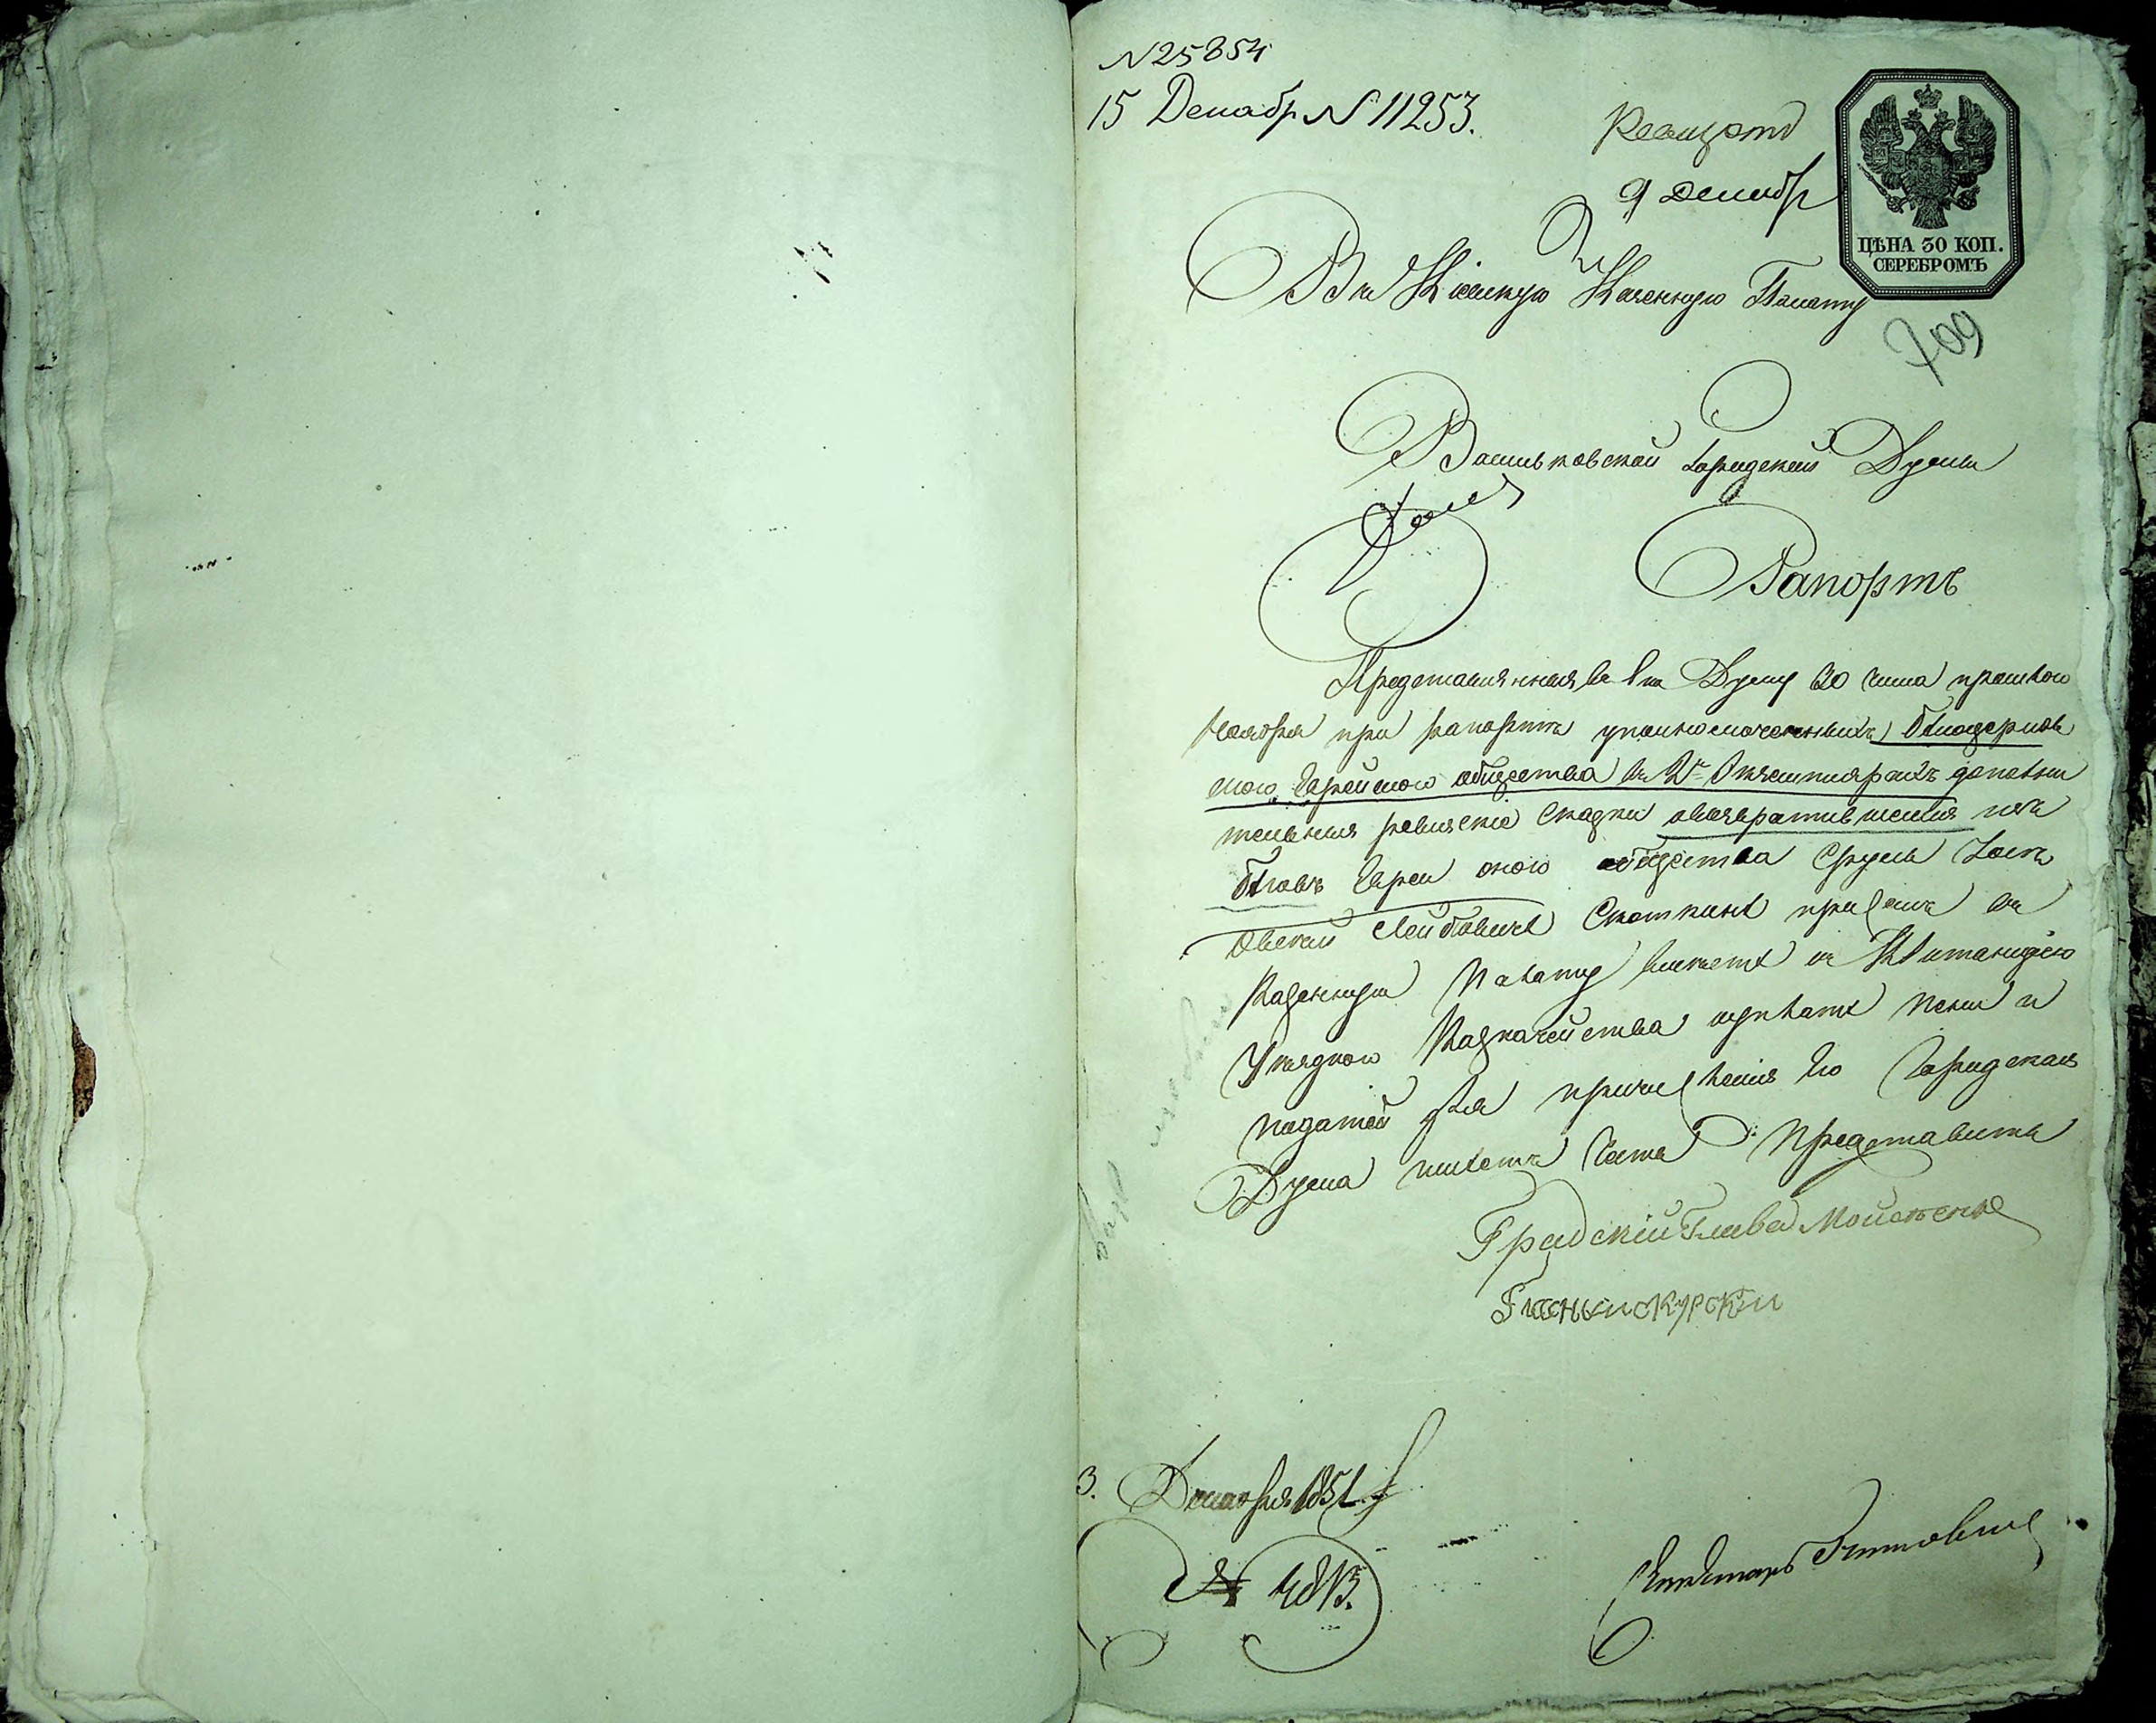 N 25854
15 Декабр N 11253.
9 Декабр
ЦѢНА 30 КОП.
СЕРЕБРОМЪ
Въ Кіевскую Казенную Палату
709
Васильковской Городской Думы
Рапортъ
Представленныя въ Думу 30 числа прошлого
Ноября при рапортѣ уполномоченныхъ Бѣлоцерков
ского Еврейского общества въ 2хъ Экземплярахъ дополни
тельныя ревизскіе сказки о возвратившемся изъ
бѣговъ Евреи оного общества Сруль
Лейбовичѣ при семъ въ
Казенную Палату вмѣстѣ и Квитанцію
Уѣзднаго Казначейства пени и
податей для причисленія Его Городская
Дума имѣетъ честь Представить
Градскій Глава
Гласный
3. Декабря 1851 г
№ 4813.
Секретарь